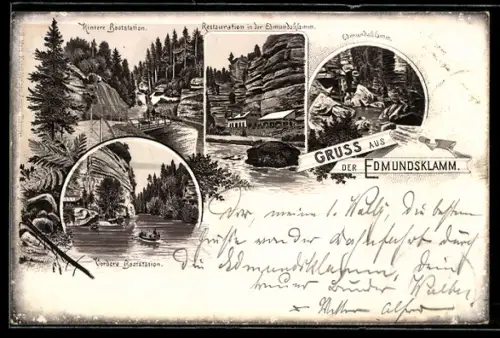 Hintere Bootstation.
Restauration in der Edmundsklamm.
Edmundsklamm.
GRUSS AUS
DER EDMUNDSKLAMM.
Vordere Bootstation.
Dir, meine l. Wally, die besten
Grüsse von der Kahnfahrt durch
die Edmundsklamm, Dein
treuer Bruder
Alfred